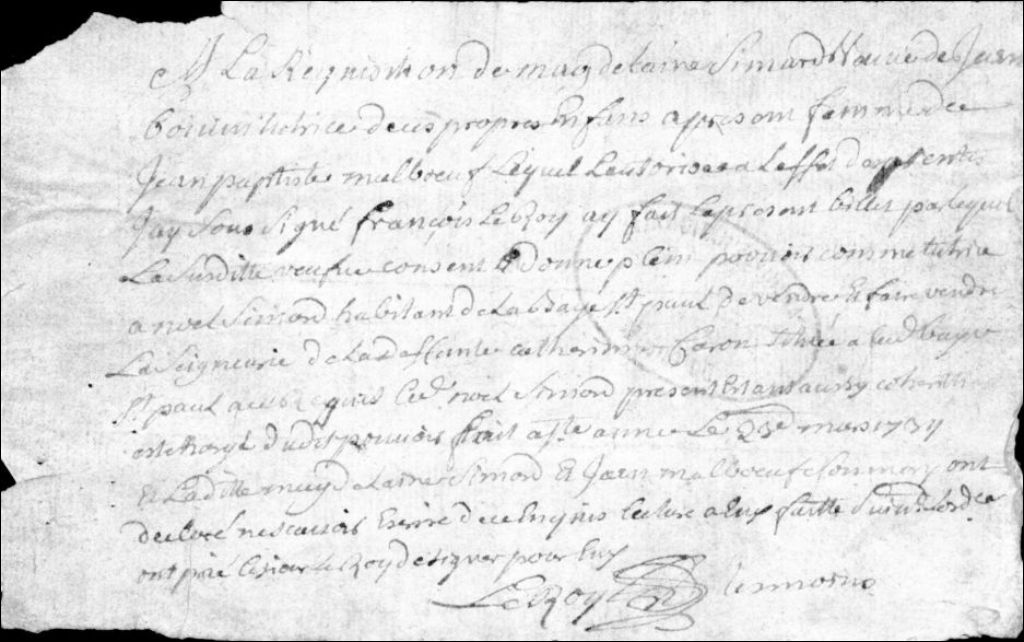 A La Requisition de magdelaine Simard Vauve de Jean
tutrice de ces propres Enfans apresant femme de
Jean paptiste malboeuf Lequel Lautorise a Leffet
Jay Sous Signé François LeRoy ay fait Lepresent billet par lequel
La Surditte veufve consent Et donne plein pouvoir comme tutrice
a noel Simard habitant de La baye St. paul de vendre Et faire vendre
La Seigneurie de La deffunte catherinne Caron a Lad baye
St. paul Led. noel Simard present Estant aussy
dudit pouvoir fait a Ste anne Le 23e mars
Et Laditte magdelaine Simard Et Jean malboeuf Son mary ont
declaré ne scavoir Escrire de ce Enquis lecture a Eux faitte
ont prié Lesieur LeRoy de signer pour Eux
LeRoy temoins